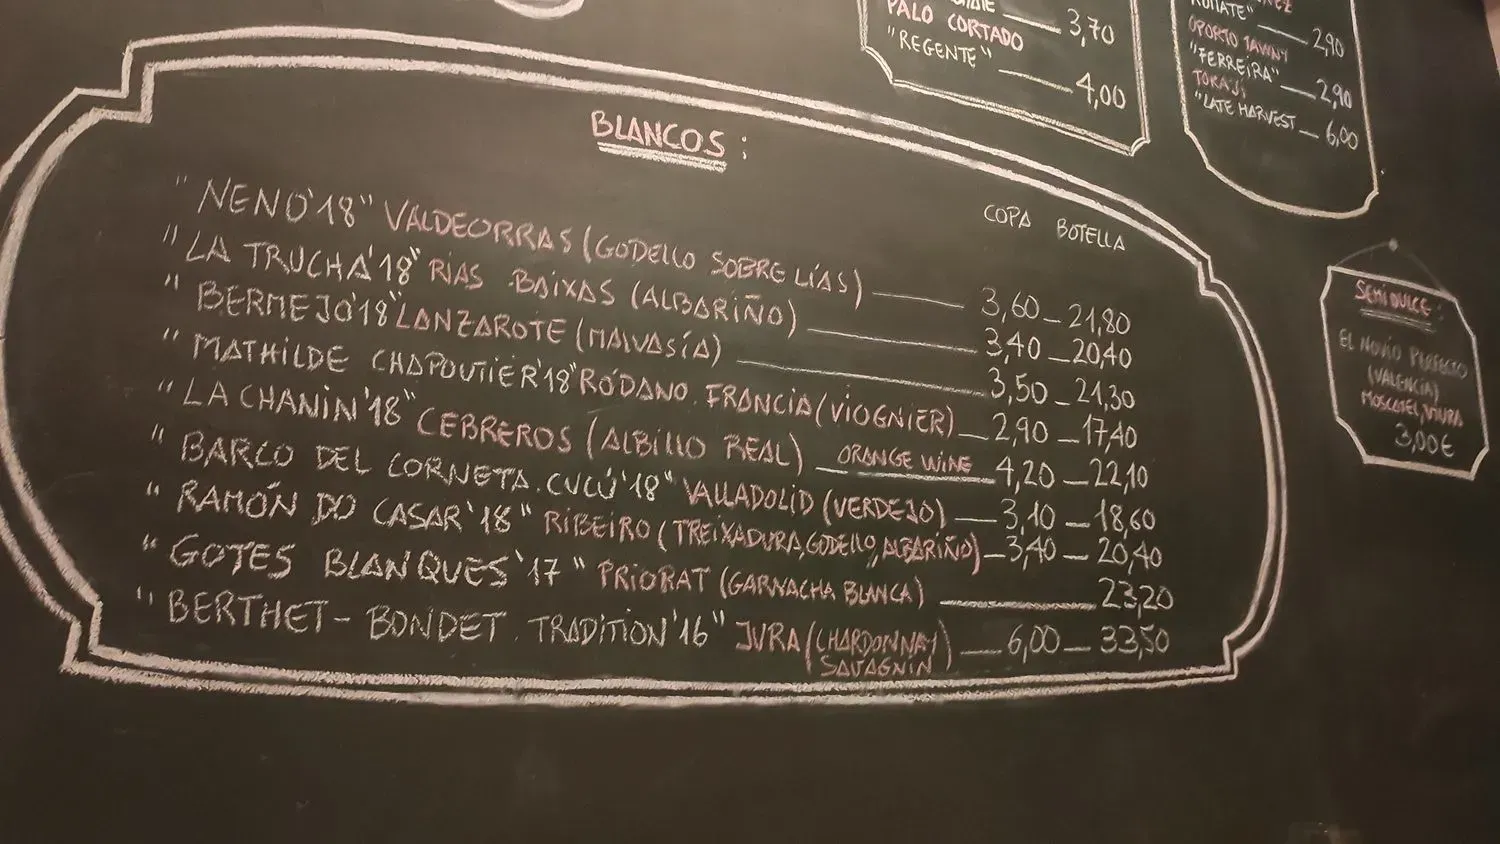 3,70
PALO CORTADO
"REGENTE" 4,00
2,90
OPORTO TAWNY
"FERREIRA" 2,90
TOKAJI
"LATE HARVEST 6,00
BLANCOS:
COPA BOTELLA
"NENO'18" VALDEORRAS (GODELLO SOBRE LÍAS) 3,60 21,80
"LA TRUCHA'18" RÍAS BAIXAS (ALBARIÑO) 3,40 20,40
"BERMEJO'18" LANZAROTE (MALVASÍA) 3,50 21,30
"MATHILDE CHAPOUTIER'18" RÓDANO. FRANCIA (VIOGNIER) 2,90 17,40
"LA CHANIN'18" CEBREROS (ALBILLO REAL) ORANGE WINE 4,20 22,10
"BARCO DEL CORNETA. CUCÚ'18" VALLADOLID (VERDEJO) 3,10 18,60
"RAMÓN DO CASAR'18" RIBEIRO (TREIXADURA, GODELLO, ALBARIÑO) 3,40 20,40
"GOTES BLANQUES'17" PRIORAT (GARNACHA BLANCA) 23,20
"BERTHET-BONDET. TRADITION'16" JURA (CHARDONNAY 6,00 33,50
SAVAGNIN)
SEMIDULCE:
EL NOVIO PERFECTO
(VALENCIA)
MOSCATEL, VIURA
3,00€